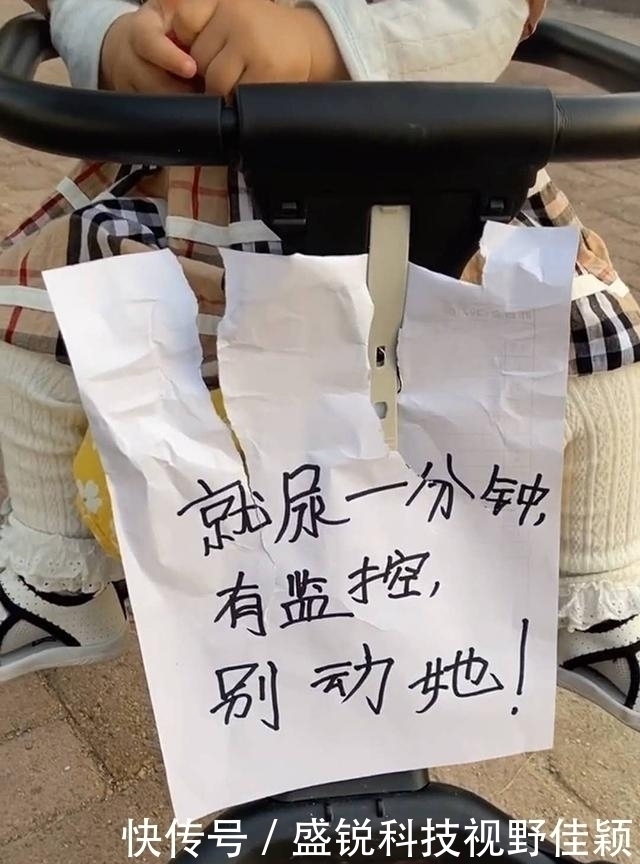 就尿一分钟,
有监控,
别动她!
快传号/盛锐科技视野佳颖